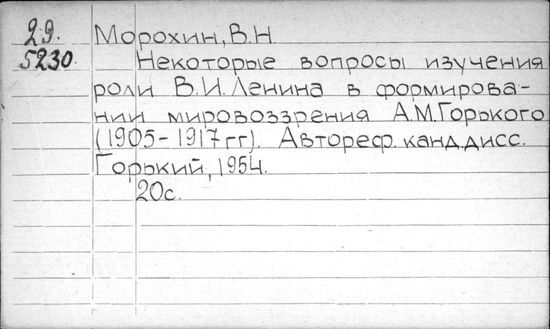 29. Морохин, В.Н
5230. Некоторые вопросы изучения
роли В.И.Ленина в формирова-
нии мировоззрения А.М.Горького
(1905-1917гг). Автореф. канд.дисс.
Горький, 1954.
20с.